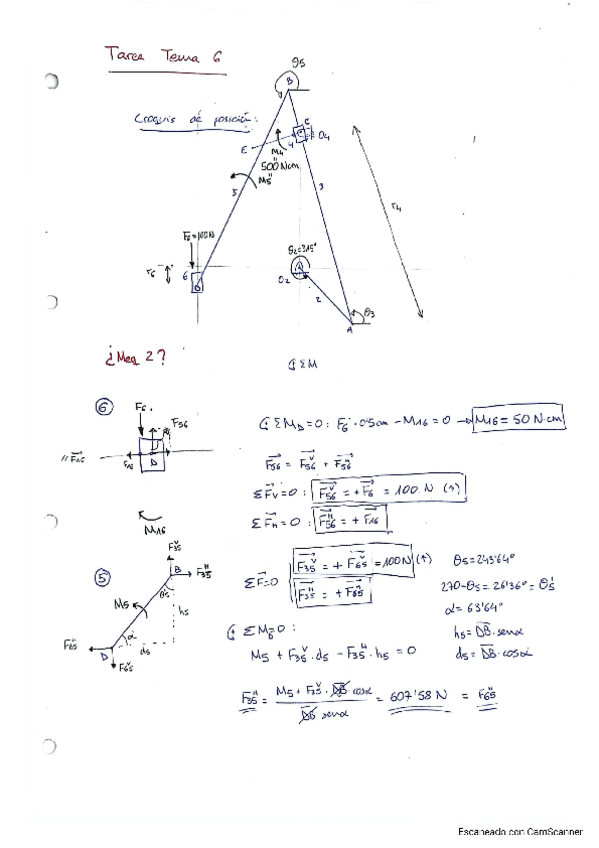 Tarea Tema 6
Croquis de posición:
θ5
B
C
4
O4
E
M4
500 N·cm
M5
5
3
r4
F6=100N
r6
6
D
θ2=315°
O2
2
θ3
A
¿Meq 2?
↺ ΣM
6
F6
F56
// F16
F16
D
M16
↺ ΣMD=0: F6 · 0'5cm - M16 = 0 → M16 = 50 N·cm
F56 = F56^V + F56^H
ΣFV=0: F56^V = +F6 = 100 N (↑)
ΣFH=0: F56^H = +F16
5
F35^V
B
F35^H
θ5'
M5
h5
α
F65^H
D
d5
F65^V
ΣF=0
F35^V = + F65^V = 100N (↑)
F35^H = + F65^H
θ5=243'64°
270-θ5 = 26'36° = θ5'
α = 63'64°
h5 = DB · senα
d5 = DB · cosα
↺ ΣMD=0:
M5 + F35^V · d5 - F35^H · h5 = 0
F35^H = (M5 + F35^V · DB · cosα) / (DB senα) = 607'58 N = F65^H
Escaneado con CamScanner